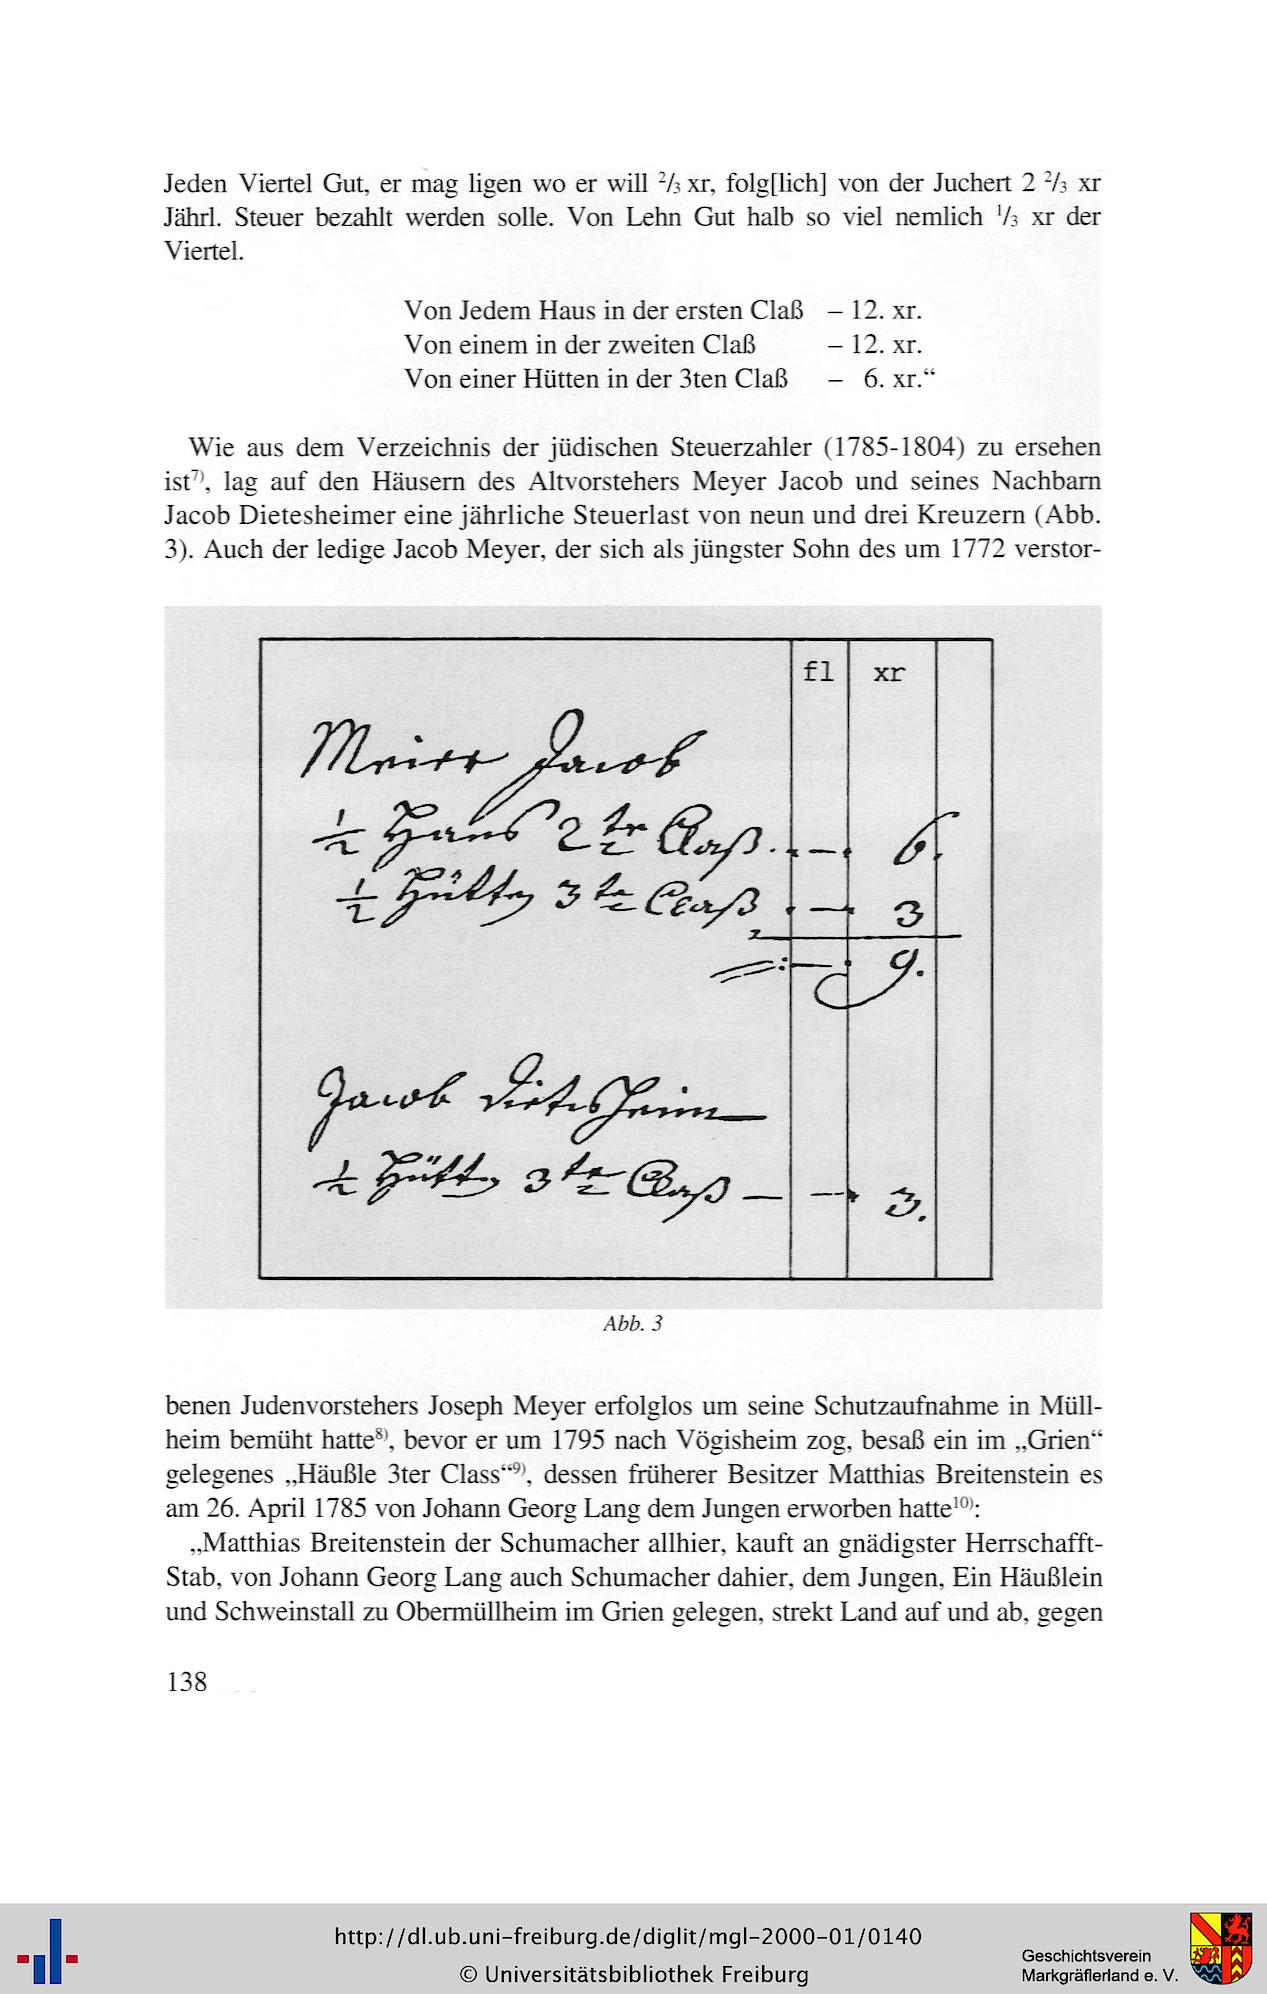 Jeden Viertel Gut, er mag ligen wo er will ²/₃ xr, folg[lich] von der Juchert 2 ²/₃ xr
Jährl. Steuer bezahlt werden solle. Von Lehn Gut halb so viel nemlich ¹/₃ xr der
Viertel.
Von Jedem Haus in der ersten Claß – 12. xr.
Von einem in der zweiten Claß – 12. xr.
Von einer Hütten in der 3ten Claß – 6. xr.“
Wie aus dem Verzeichnis der jüdischen Steuerzahler (1785-1804) zu ersehen
ist⁷⁾, lag auf den Häusern des Altvorstehers Meyer Jacob und seines Nachbarn
Jacob Dietesheimer eine jährliche Steuerlast von neun und drei Kreuzern (Abb.
3). Auch der ledige Jacob Meyer, der sich als jüngster Sohn des um 1772 verstor-
fl xr
Meier Jacob
½ Haus 2 te Claß . – . 6.
½ Hütten 3 te Claß . – . 3
: – . 9.
Jacob Dietesheim
½ Hütten 3 te Claß – – . 3.
Abb. 3
benen Judenvorstehers Joseph Meyer erfolglos um seine Schutzaufnahme in Müll-
heim bemüht hatte⁸⁾, bevor er um 1795 nach Vögisheim zog, besaß ein im „Grien“
gelegenes „Häußle 3ter Class“⁹⁾, dessen früherer Besitzer Matthias Breitenstein es
am 26. April 1785 von Johann Georg Lang dem Jungen erworben hatte¹⁰⁾:
„Matthias Breitenstein der Schumacher allhier, kauft an gnädigster Herrschafft-
Stab, von Johann Georg Lang auch Schumacher dahier, dem Jungen, Ein Häußlein
und Schweinstall zu Obermüllheim im Grien gelegen, strekt Land auf und ab, gegen
138
http://dl.ub.uni-freiburg.de/diglit/mgl-2000-01/0140
© Universitätsbibliothek Freiburg
Geschichtsverein
Markgräflerland e. V.